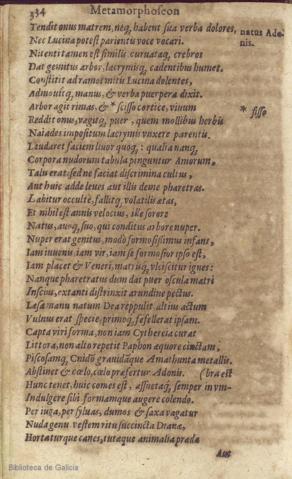 334 Metamorphoseon
Tendit onus matrem, neq, habent sua verba dolores,
natus Ado-
nis.
Nec Lucina potest parientis voce vocari.
Nitenti tamen est similis curuataq, crebros
Dat gemitus arbor, lacrymisq, cadentibus humet.
Constitit ad ramos mitis Lucina dolentes,
Admouitq, manus, & verba puerpera dixit.
Arbor agit rimas, & * scisso cortice, viuum
* fisso
Reddit onus, vagitq, puer, quem mollibus herbis
Naiades impositum lacrymis vnxere parentis.
Laudaret faciem liuor quoq, : qualia nanq,
Corpora nudorum tabula pinguntur Amorum,
Talis erat: sed ne faciat discrimina cultus,
Aut huic adde leues aut illis deme pharetras.
Labitur occultè, fallitq, volatilis ætas,
Et nihil est annis velocius, ille sorore
Natus, auoq, suo, qui conditus arbore nuper.
Nuper erat genitus, modo formosissimus infans,
Iam iuuenis, iam vir, iam se formosior ipso est,
Iam placet & Veneri, matrisq, vlciscitur ignes:
Nanque pharetratus dum dat puer oscula matri
Inscius, extanti distrinxit arundine pectus.
Læsa manu natum Dea reppulit. altius actum
Vulnus erat specie, primoq, fefellerat ipsam.
Capta viri forma, non iam Cythereia curat
Littora, non alto repetit Paphon æquore cinctam,
Piscosamq, Cnidon grauidáque Amathunta metallis.
Abstinet & cœlo, cœlo præfertur Adonis. (bra est
Hunc tenet, huic comes est, assuetaq, semper in vm-
Indulgere sibi formamque augere colendo.
Per iuga, per syluas, dumos & saxa vagatur
Nuda genu vestem ritu succincta Dianæ,
Hortaturque canes, tutaque animalia præda
Aut
Biblioteca de Galicia